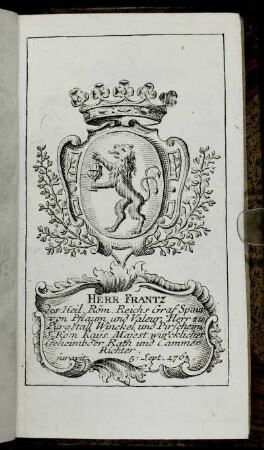 HERR FRANTZ
des Heil. Röm. Reichs Graf Spaur
von Pflaum und Valeur, Herr zu
Purgstall, Winckel und Pirschheim
Röm. Kaÿs. Maiest. würcklicher
Geheimbder Rath und Cammer
Richter
juravit 5. Sept. 1763.